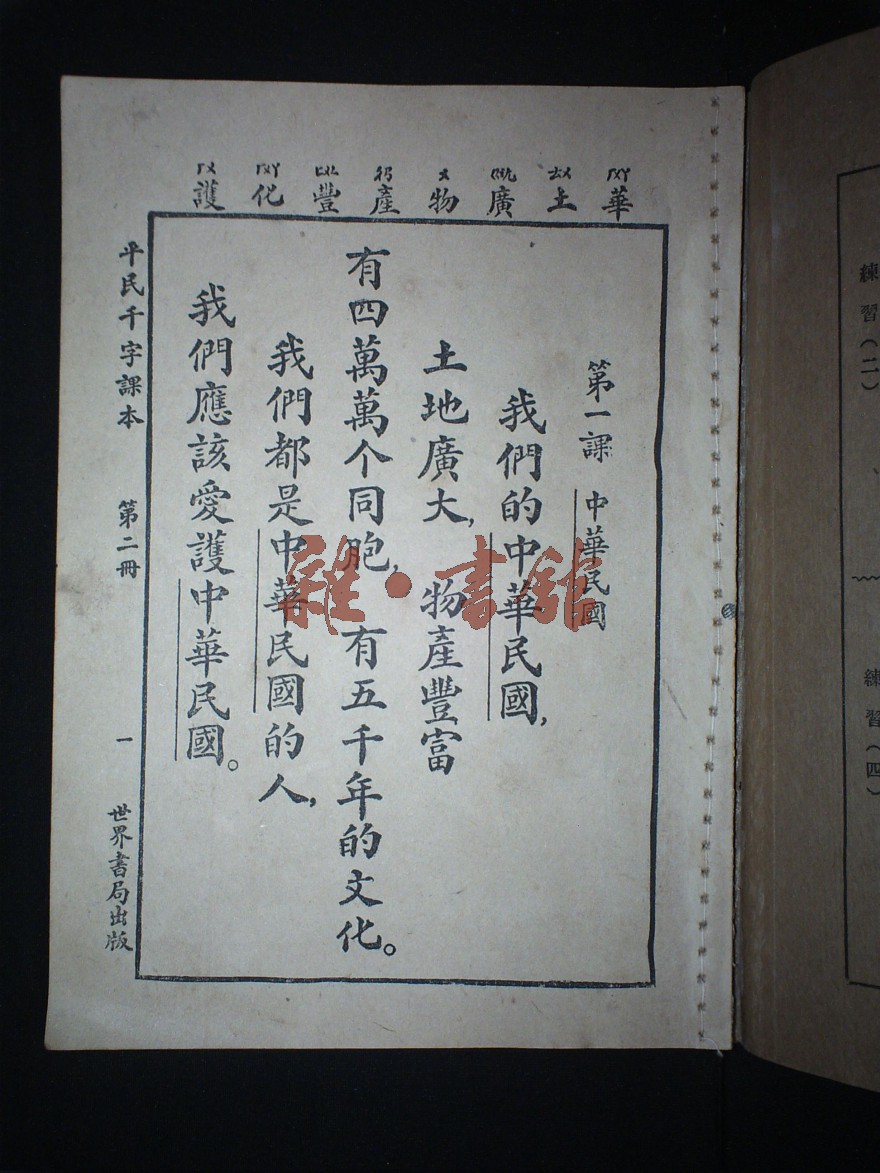 華 土 廣 物 產 豐 化 護
第一課 中華民國
我們的中華民國,
土地廣大, 物產豐富
有四萬萬个同胞, 有五千年的文化。
我們都是中華民國的人,
我們應該愛護中華民國。
平民千字課本 第二冊 一 世界書局出版
雜·書館
練習(二)
練習(四)